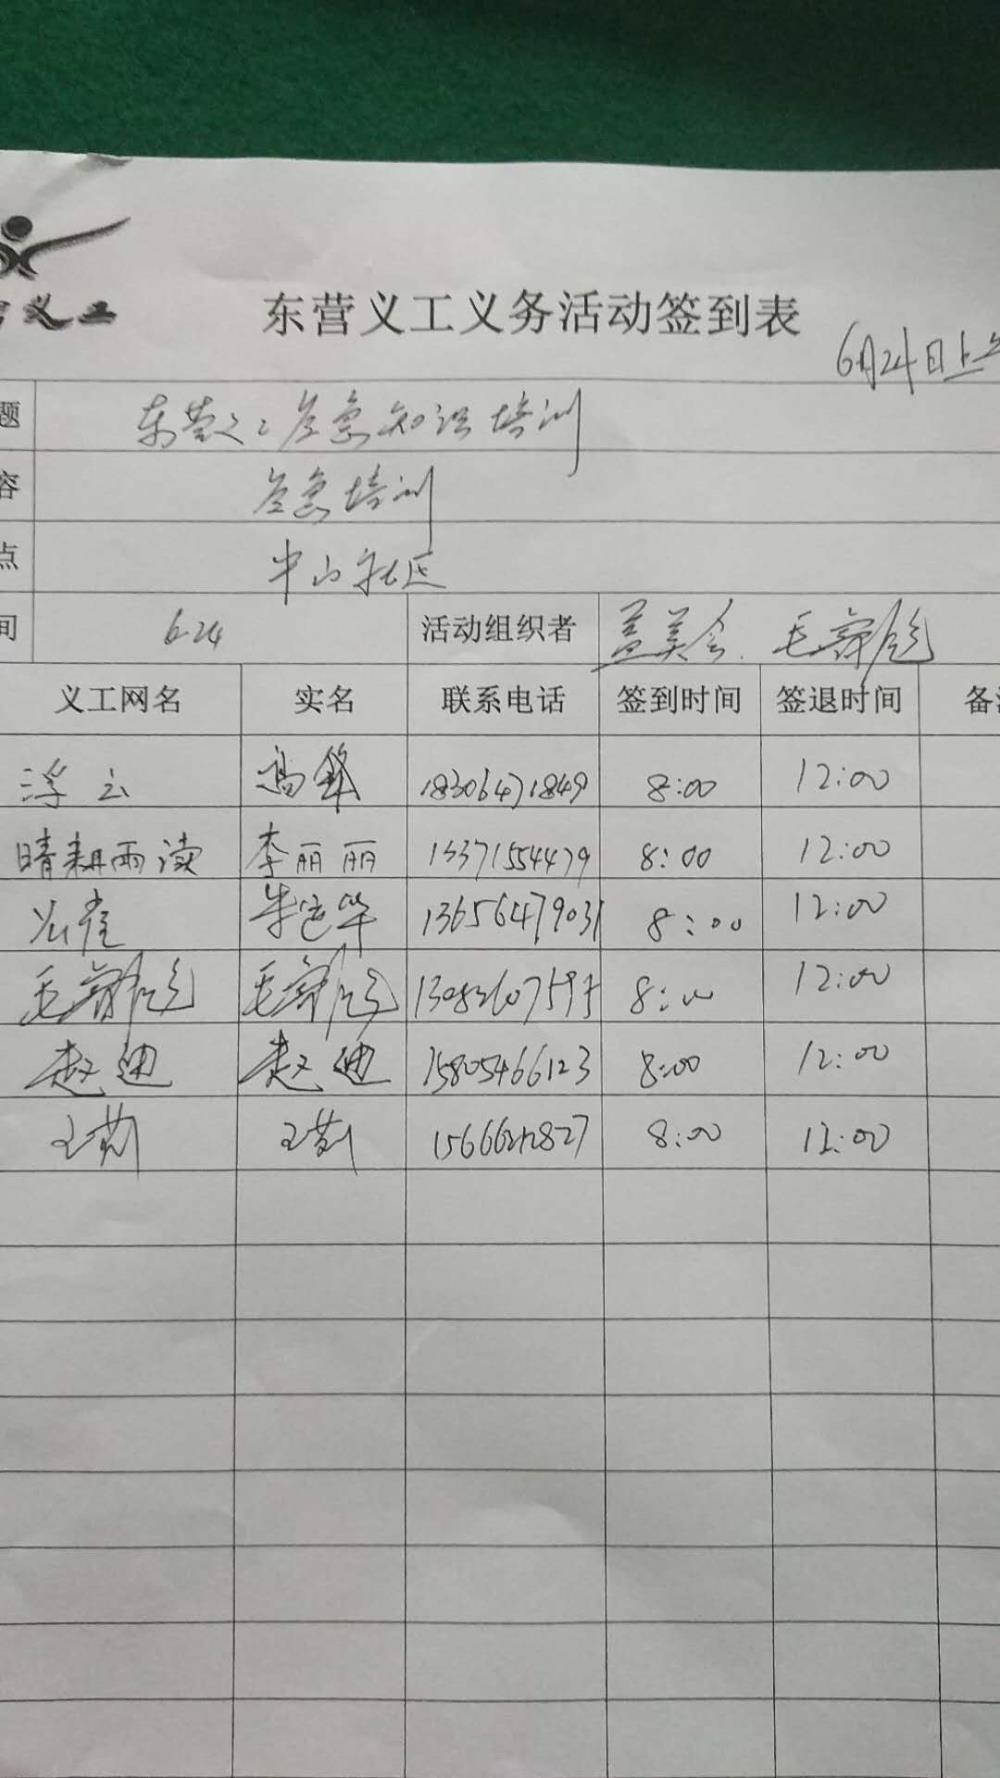 义工
东营义工义务活动签到表
6月24日上
题 东营义工应急知识培训
容 应急培训
点 中山社区
间 6-24 活动组织者 盖美会 毛
义工网名 实名 联系电话 签到时间 签退时间 备
浮云 冯锋 18306471849 8:00 12:00
晴耕雨读 李丽丽 13371554479 8:00 12:00
13656479031 8:00 12:00
毛 毛 8:00 12:00
赵迪 赵迪 15805466123 8:00 12:00
王 王 8:00 12:00